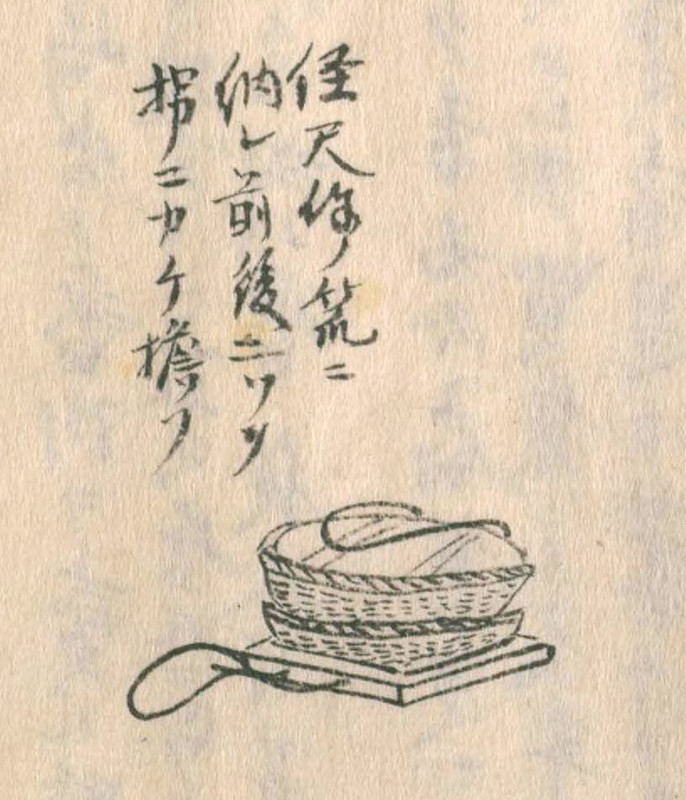 径尺余ノ籠ニ
納レ前後ニ二ツツ
枴ニカケ擔フ